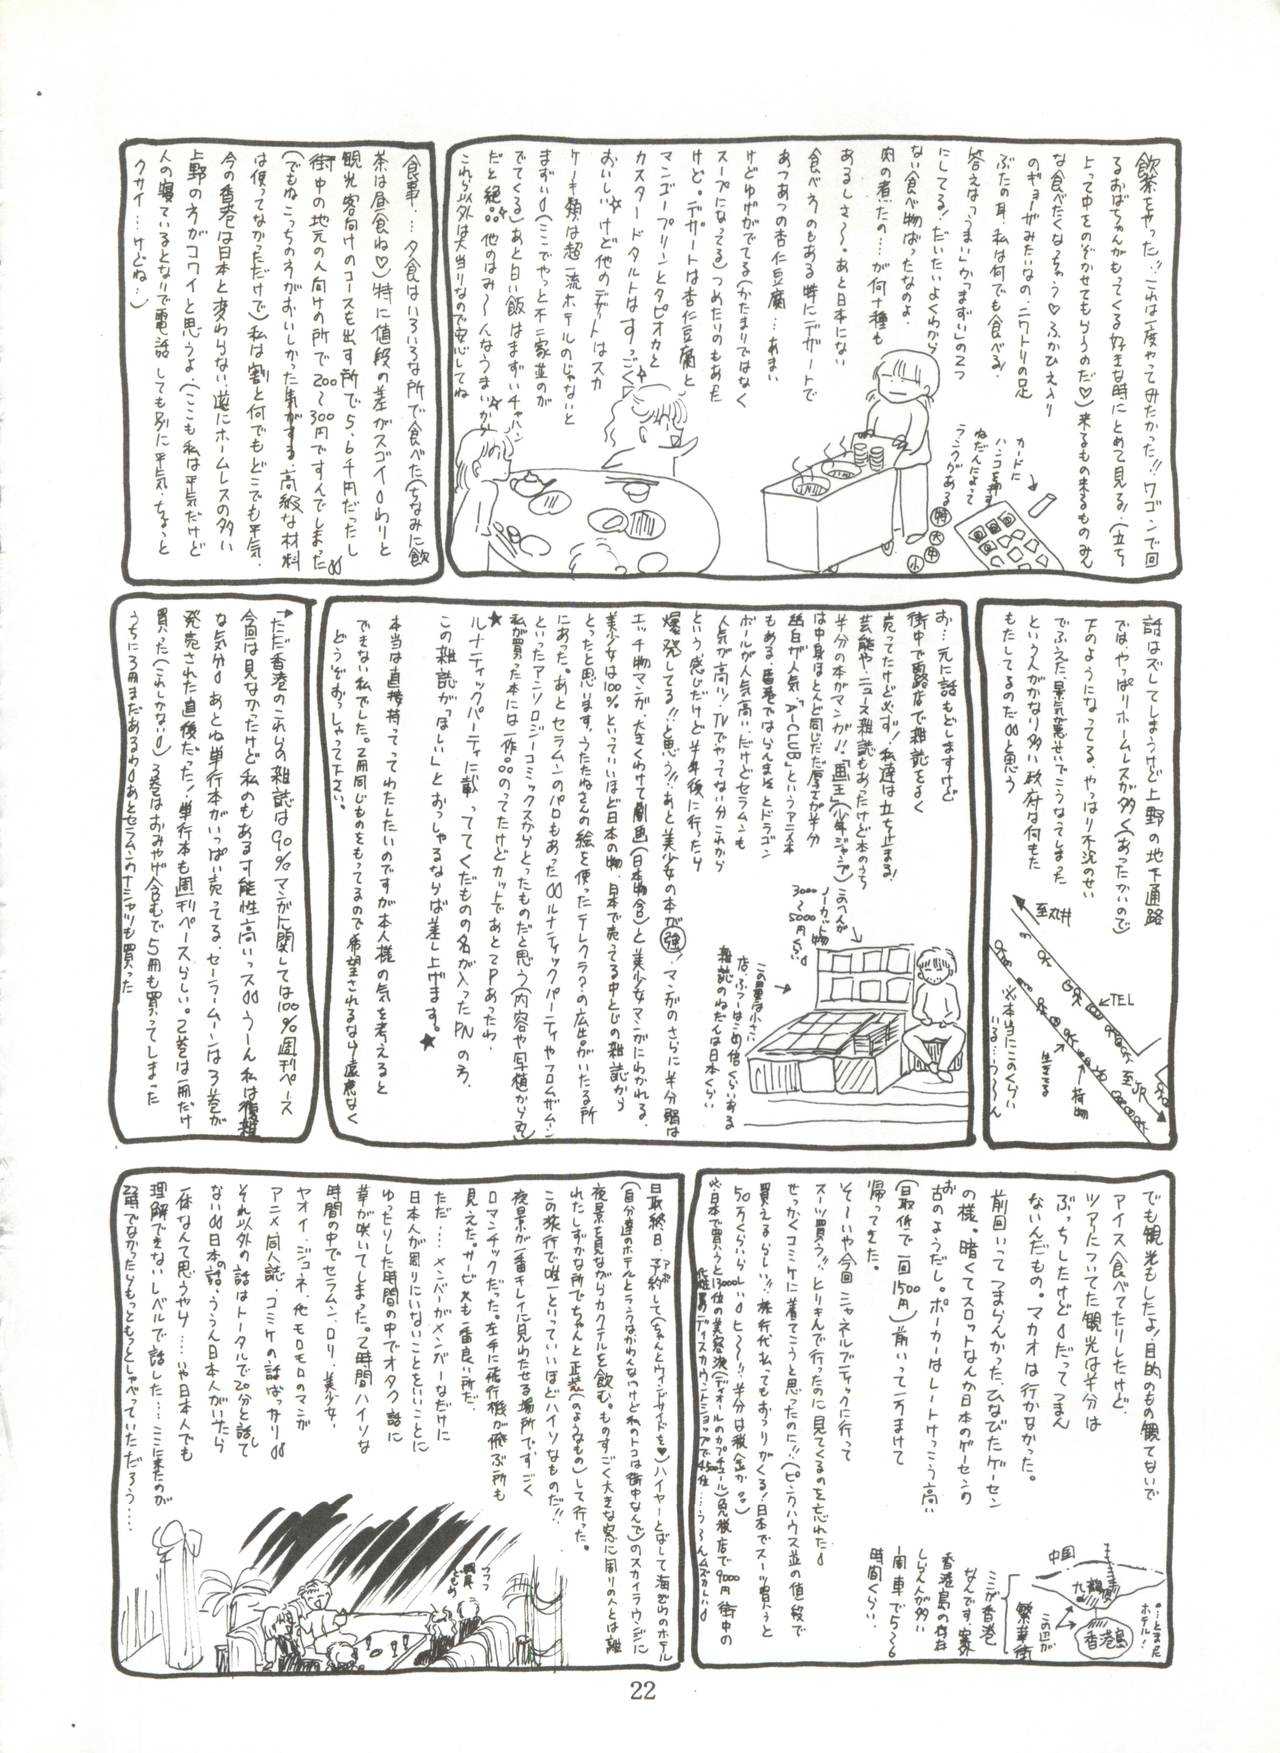 飲茶をやった!!これは一度やってみたかった!!ワゴンで回
るおばちゃんがもってくる好きな時にとめて見る!(立ち
よって中をのぞかせてもらうのだ♡)来るもの来るものみん
な食べたくなっちゃう♡ふかひれ入り
のギョーザみたいなの、ニワトリの足
ぶたの耳、私は何でも食べる!
答えは「うまい」か「まずい」の2つ
にしてる!だいたいよくわから
ない食べ物ばったなのよ。
肉の煮たの…が何十種も
あるしさ〜。あと日本にない
食べもののもある特にデザートで
あつあつの杏仁豆腐…あまい
けどゆげがでてる(かたまりではなく
スープになってる)つめたいのもあった
けど。デザートは杏仁豆腐と
マンゴープリンとタピオカと
カスタードタルトはすっごく
おいしい☆けど他のデザートはスカ
ケーキ類は超一流ホテルのじゃないと
まずい(ここでやっと不二家並のが
でてくる)あと白い飯はまずいチャハン
だと絶。。他のはみ〜んなうまいから☆
これら以外は大当りなので安心してね
カードに
ハンコを押す
ねだんによって
ランクがある
特
大
中
小
食事…夕食はいろいろな所で食べた(ちなみに飲
茶は昼食ね♡)特に値段の差がスゴイ わりと
観光客向けのコースを出す所で5,6千円だったし
街中の地元の人向けの所で200〜300円ですんでしまった
(でもねこっちの方がおいしかった気がする。高級な材料
は使ってなかっただけで)私は割と何でもどこでも平気。
今の香港は日本と変わらない逆にホームレスの多い
上野の方がコワイと思うよ。(ここも私は平気だけど
人の寝ているとなりで電話しても別に平気。ちょっと
クサイ…けどね…)
話はズレてしまうけど上野の地下通路
では、やっぱりホームレスが多く(あったかいので)
下のようになってる。やっぱり不況のせい
でふえた、景気が悪せいでこうなってしまった
という人がかなり多い政府は何もた
もたしてるのだ と思う
至丸井
←TEL
至JR
荷物
生きてる
※本当にこのくらい
いる…う〜ん
お…元に話もどしますけど
街中で露路店で雑誌をよく
売ってたけど必ず!私達は立ち止まる!
芸能やニュース雑誌もあったけど本のうち
半分の本がマンガ!!「画王」(少年ジャンプ)
は中身ほとんど同じだだ厚さが半分
幽白が人気「A-CLUB」というアニメ本
もある。香港ではらんまとドラゴン
ボールが人気高い、だけどセラムンも
人気が高い。TVでやってない分これから
という感じだけど半年後に行ったら
爆発してる!!と思う!!あと美少女の本が強!マンガのさらに半分弱は
エッチ物マンガが、大きくわけて劇画(日本物含)と美少女マンガにわかれる。
美少女は100%といっていいほど日本の物、日本で売ってる中とじの雑誌から
とったと思います。うたたねさんの絵を使ったテレクラ?の広告がいたる所
にあった。あとセラムンのパロもあった ルナティックパーティやフロムザムーン
といったアンソロジーコミックスからとったものだと思う(内容や写植から見)
私が買った本には一作。。のってたけどカットであと2Pあったわ。
★
ルナティックパーティに載っててくだもの名が入ったPNの方、
この雑誌が「ほしい」とおっしゃるならば差し上げます。★
本当は直接持ってってわたしたいのですが本人様の気を考えると
できない私でした。2冊同じものをもってるので希望されるなら遠慮なく
どうぞおっしゃって下さい。
このへんが
ノーカット物
3000
〜
5000円くらい
この置量は小さい
店、ふつーはこの倍くらいある
雑誌のねだんは日本くらい
★ただ香港のこれらの雑誌は90%マンガに関しては100%週刊ペース
今回は見なかったけど私のもある可能性高いっス うーん私は複雑
な気分 あとね単行本がいっぱい売ってる、セーラームーンは3巻が
発売された直後だった!単行本も週刊ペースらしい。2巻は一冊だけ
買った(これしかない)3巻はおみやげ含むで5冊も買ってしまった
うちに3冊まだあるわ あとセラムンのTシャツも買った
でも観光もしたよ!目的のもの観てないで
アイス食べてたりしたけど。
ツアーについてた観光は半分は
ぶっちしたけど だってつまん
ないんだもの。マカオは行かなかった。
前回いってつまらんかった、ひなびたゲーセン
の様。暗くてスロットなんか日本のゲーセンの
お古のようだし。ポーカーはレートけっこう高い
(最低で一回1500円)前いって一万まけて
帰ってきた。
そ〜いや今回シャネルブティックに行って
スーツ買う!!とリキんで行ったのに見てくるのを忘れた
せっかくコミケに着てこうと思ったのに!!(ピンクハウス並の値段で
買えるらしい!!旅行代払ってもおつりがくる!日本でスーツ買うと
50万くらいらしい ヒ〜!!半分は税金か。。)
※日本で買うと13000位の美容液(ディオールのカプチュール)免税店で9000円街中の
化粧品のディスカウントショップで4500位…う〜んムズカしい
中国
九龍
香港島
この辺が
繁華街
。…とまった
ホテル!
ここが香港
なんです。案
香港島の方は
しらん人が多い
一周車で5〜6
時間ぐらい
最終日、予約して(ちゃんとウィンドサイドを♡)ハイヤーとばして海ぎわのホテル
(自分達のホテルとランクなかわんなつけど私のトコは街中なんで)のスカイラウンジに
夜景を見ながらカクテルを飲む。ものすごく大きな窓に周りの人とは離
れたしずかな所でちゃんと正装(のようなもの)して行った。
この旅行で唯一といっていいほどハイソなものだ!!
夜景が一番キレイに見わたせる場所ですごく
ロマンチックだった。左手に飛行機が飛ぶ所も
見えた。サービスも一番良い所だ。
ただ…メンバーがメンバーなだけに
日本人が周りにいないことをいいことに
ゆったりした時間の中でオタク話に
草が咲いてしまった。2時間ハイソな
時間の中でセラムン、ロリ、美少女、
ヤオイ、ジュネ、他モロモロのマンガ
アニメ同人誌、コミケの話ばっかり
それ以外の話はトータルで20分と話して
ない 日本の話、ううん日本人がいたら
一体なんて思うやら…いや日本人でも
理解できないレベルで話した…ここに来たのが
2時でなかったらもっともっとしゃべっていただろう…
22